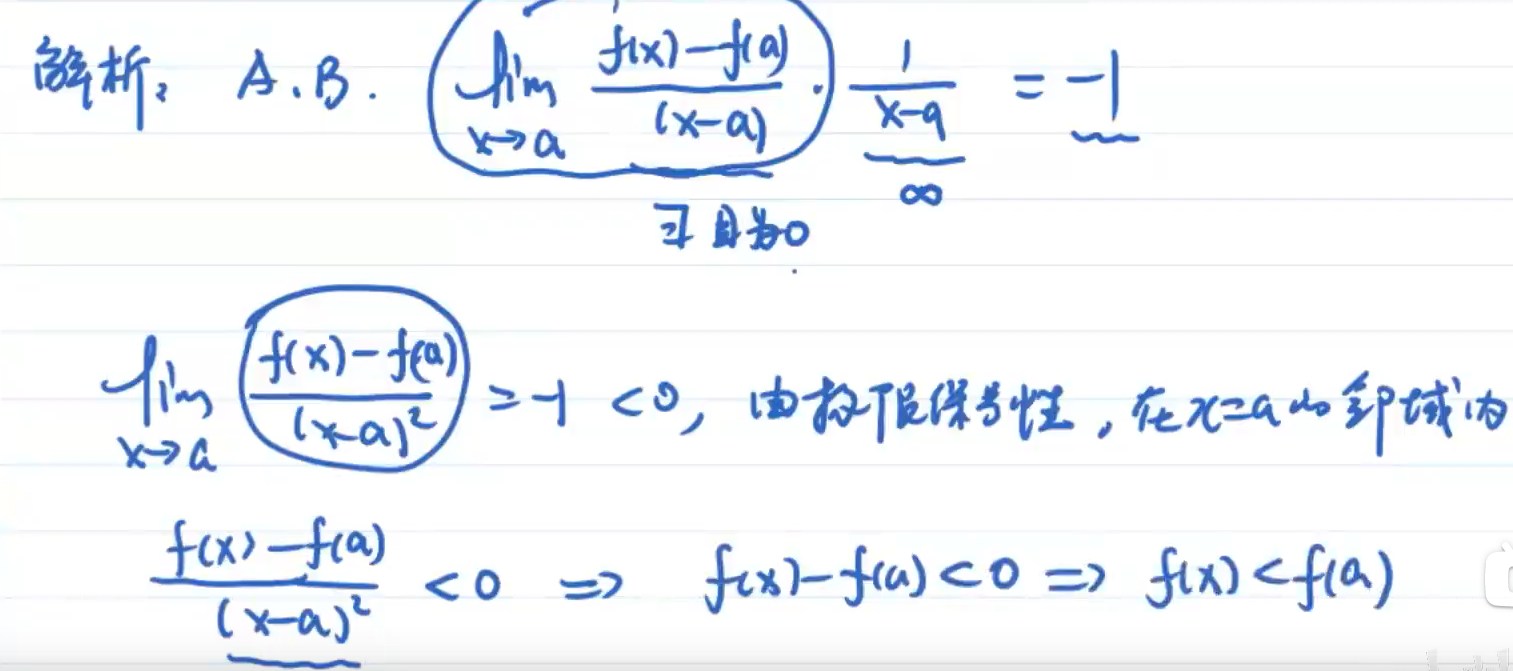 解析: A.B. lim x→a f(x)-f(a)/(x-a) · 1/x-a = -1
∃且为0 ∞
lim x→a f(x)-f(a)/(x-a)² = -1 <0, 由极限保号性, 在x=a的邻域内
f(x)-f(a)/(x-a)² <0 => f(x)-f(a)<0 => f(x)<f(a)